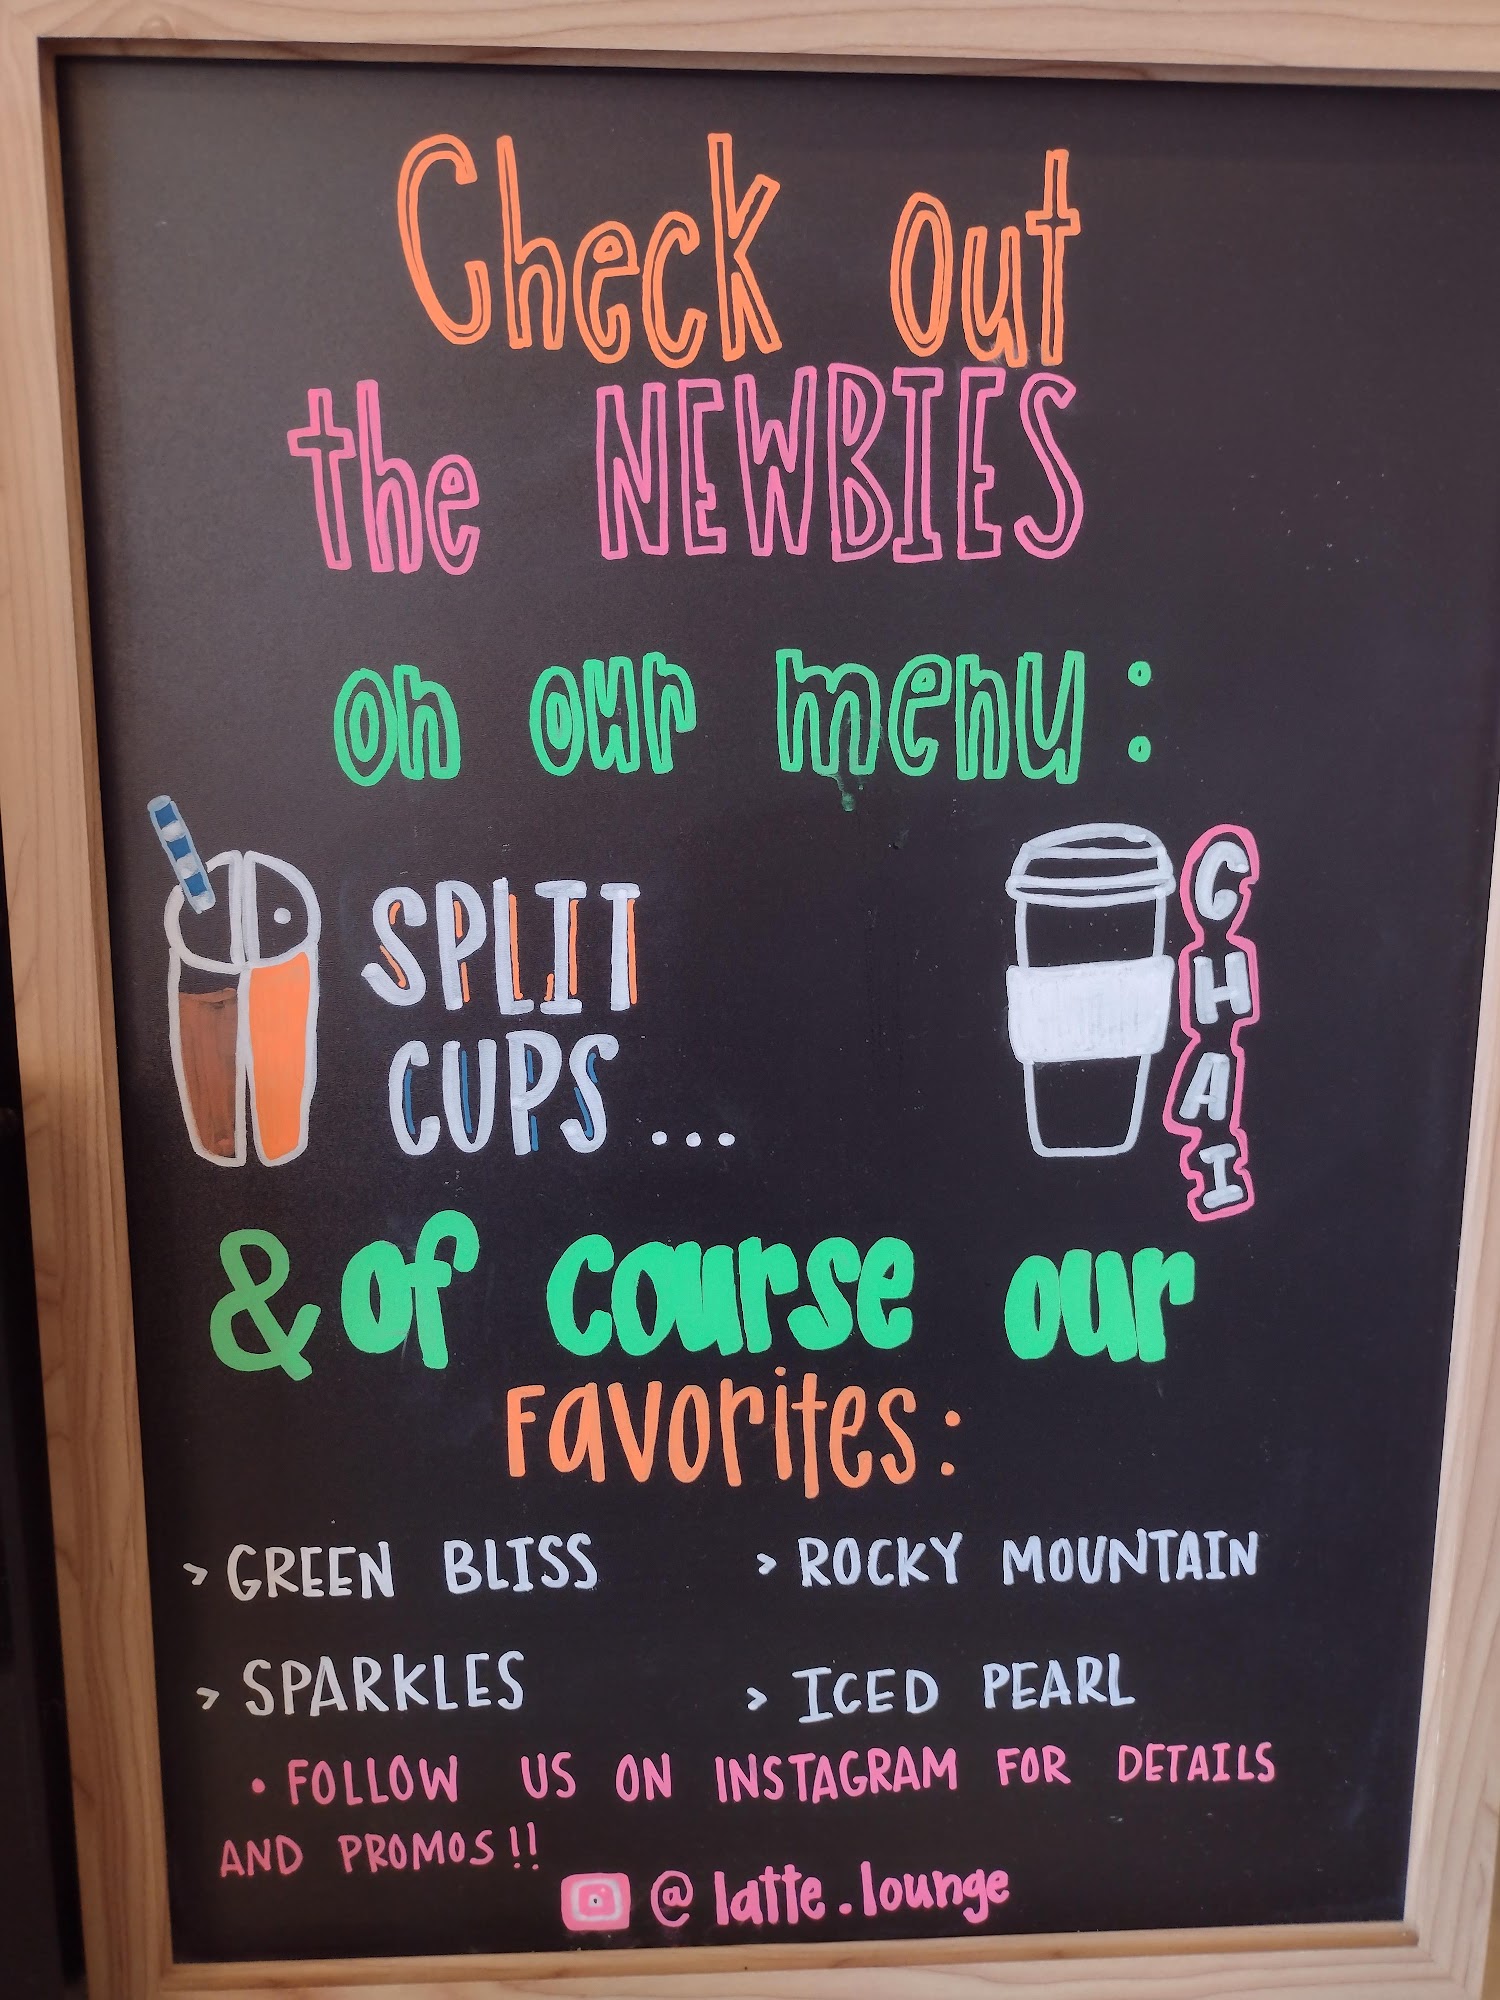 Check out
the NEWBIES
on our menu:
SPLIT
CUPS...
CHAI
& of course our
Favorites:
> GREEN BLISS
> ROCKY MOUNTAIN
> SPARKLES
> ICED PEARL
• FOLLOW US ON INSTAGRAM FOR DETAILS
AND PROMOS!!
@latte.lounge